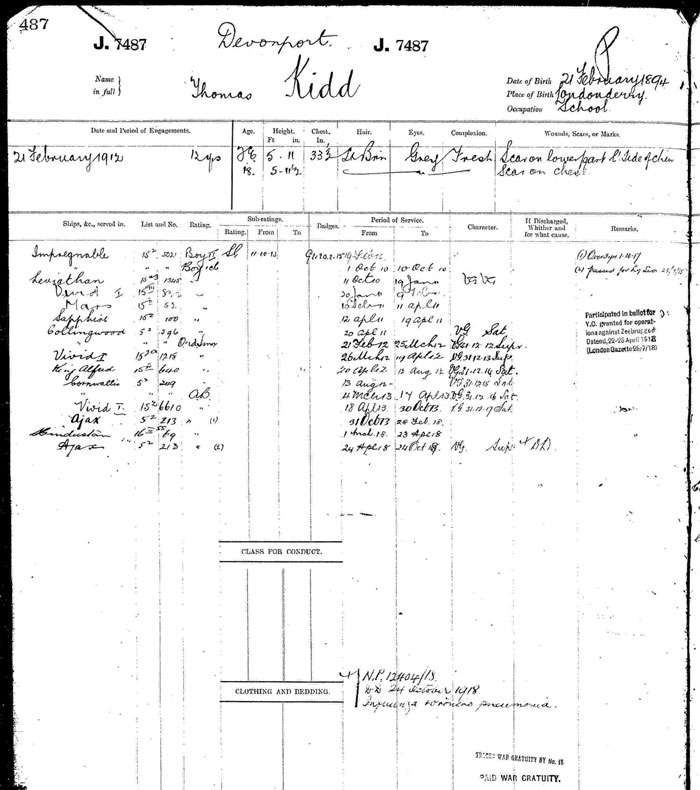 487
J. 7487 Devonport. J. 7487 P
Name in full } Thomas Kidd
Date of Birth 21 February 1894
Place of Birth Londonderry.
Occupation School.
Date and Period of Engagements. Age. Height. Ft in. Chest. In. Hair. Eyes. Complexion. Wounds, Scars, or Marks.
21 February 1912 12 yrs 5 . 11 33½ Lt Brn Grey Fresh Scar on lower part L Side of chin
18. 5 - 11½ Scar on chest.
Ships, &c., served in. List and No. Rating. Sub-ratings. Rating. From To Badges. Period of Service. From To Character. If Discharged, Whither and for what cause. Remarks.
Impregnable 15² Boy II SG 11.10.12
" " " Boy 1ch 1 Oct 10 10 Oct 10
Leviathan " 11 Oct 10 19 Jan VG VG
Vivid I " 20 Jan 9
Mars 15² 52 "
Sapphire 15² 100 " 12 Apl 11 19 Apl 11
Collingwood 5² 296 " 20 Apl 11 VG Sat
" " " Ord Smn 21 Feb 12 25 Mch 12 VG 31.12.12 Supr
Vivid I 15² 1218 " 26 Mch 12 19 Apl 12 VG 31.12.13 Sup.
King Alfred 15² 640 " 20 Apl 12 12 Aug 12 VG 31.12.14 Sat.
Cornwallis 5² " 13 Aug 12 - VG 31.12.15 Sat
" AB 4 Mch 13 17 Apl 13 VG 31.12.16 Sat.
Vivid I. 15² 6610 " 18 Apl 13 30 Oct 13 VG 31.12.17 Sat
Ajax 5² 213 " (1) 31 Oct 13 28 Feb. 18.
Hindustan 69 " 1 Mch. 18 23 Apl 18
Ajax 5² 213 " (2) 24 Apl 18 24 Oct 18. VG. Sup. + DD.
Participated in ballot for
V.C. granted for operat-
ions against Zeebrugge &
Ostend, 22-23 April 1918
(London Gazette 26/7/18)
CLASS FOR CONDUCT.
CLOTHING AND BEDDING.
+ N.P. 12404/18.
DD 24 October 1918
Influenza pneumonia.
TRACED WAR GRATUITY BY No. 18
PAID WAR GRATUITY.